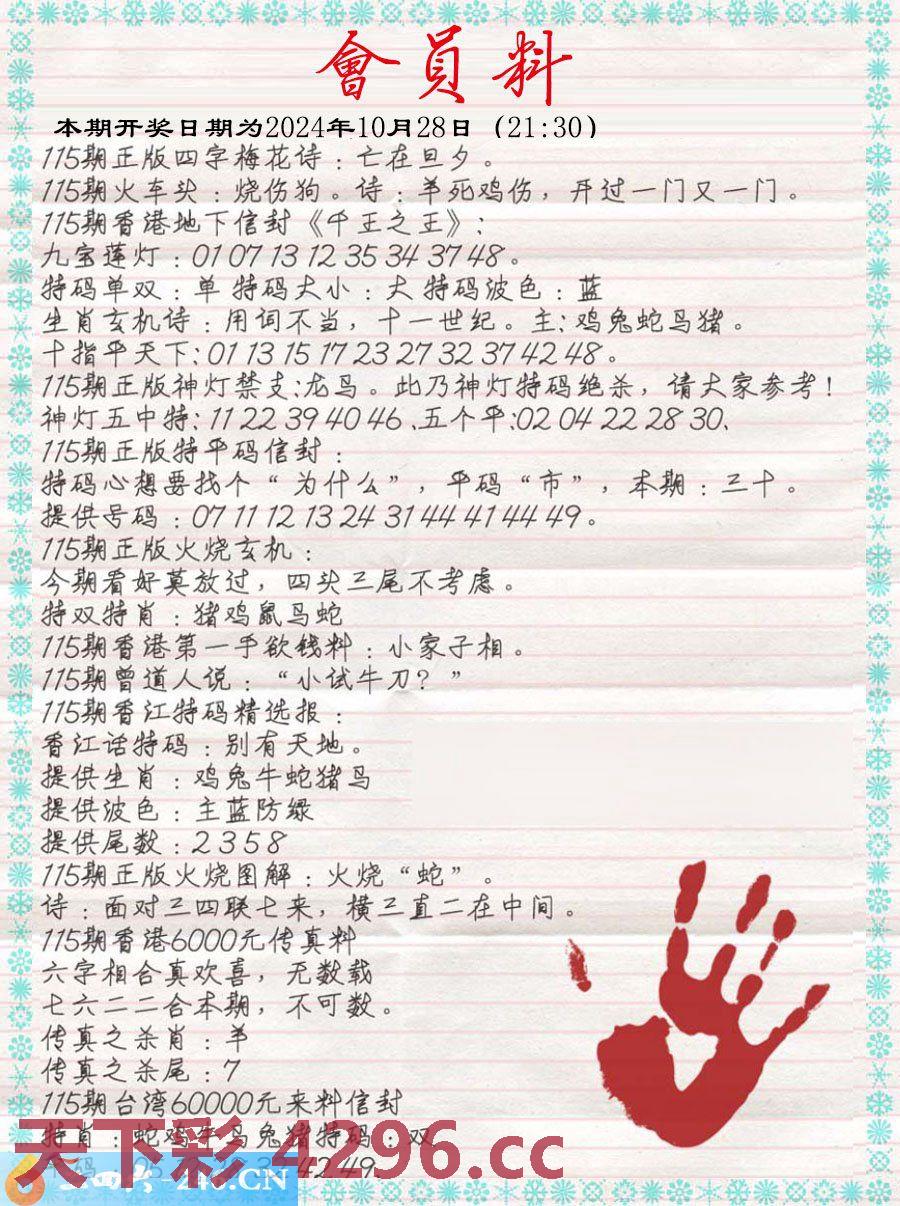 會員料
本期开奖日期为2024年10月28日（21:30）
115期正版四字梅花诗：亡在旦夕。
115期火车头：烧伤狗。诗：羊死鸡伤，开过一门又一门。
115期香港地下信封《千王之王》：
九宝莲灯：01 07 13 12 35 34 37 48。
特码单双：单 特码大小：大 特码波色：蓝
生肖玄机诗：用词不当，十一世纪。主：鸡兔蛇马猪。
十指平天下：01 13 15 17 23 27 32 37 42 48。
115期正版神灯禁支：龙马。此乃神灯特码绝杀，请大家参考！
神灯五中特：11 22 39 40 46、五个平：02 04 22 28 30、
115期正版特平码信封：
特码心想要找个“为什么”，平码“市”，本期：三十。
提供号码：07 11 12 13 24 31 44 41 44 49。
115期正版火烧玄机：
今期看好莫放过，四头三尾不考虑。
特双特肖：猪鸡鼠马蛇
115期香港第一手欲钱料：小家子相。
115期曾道人说：“小试牛刀？”
115期香江特码精选报：
香江话特码：别有天地。
提供生肖：鸡兔牛蛇猪马
提供波色：主蓝防绿
提供尾数：2 3 5 8
115期正版火烧图解：火烧“蛇”。
诗：面对三四联七来，横三直二在中间。
115期香港6000元传真料
六字相合真欢喜，无数载
七六二二合本期，不可数。
传真之杀肖：羊
传真之杀尾：7
115期台湾60000元来料信封
特肖：蛇鸡牛马兔猪特码：双
天下彩 4296.cc
42 49
246.CN